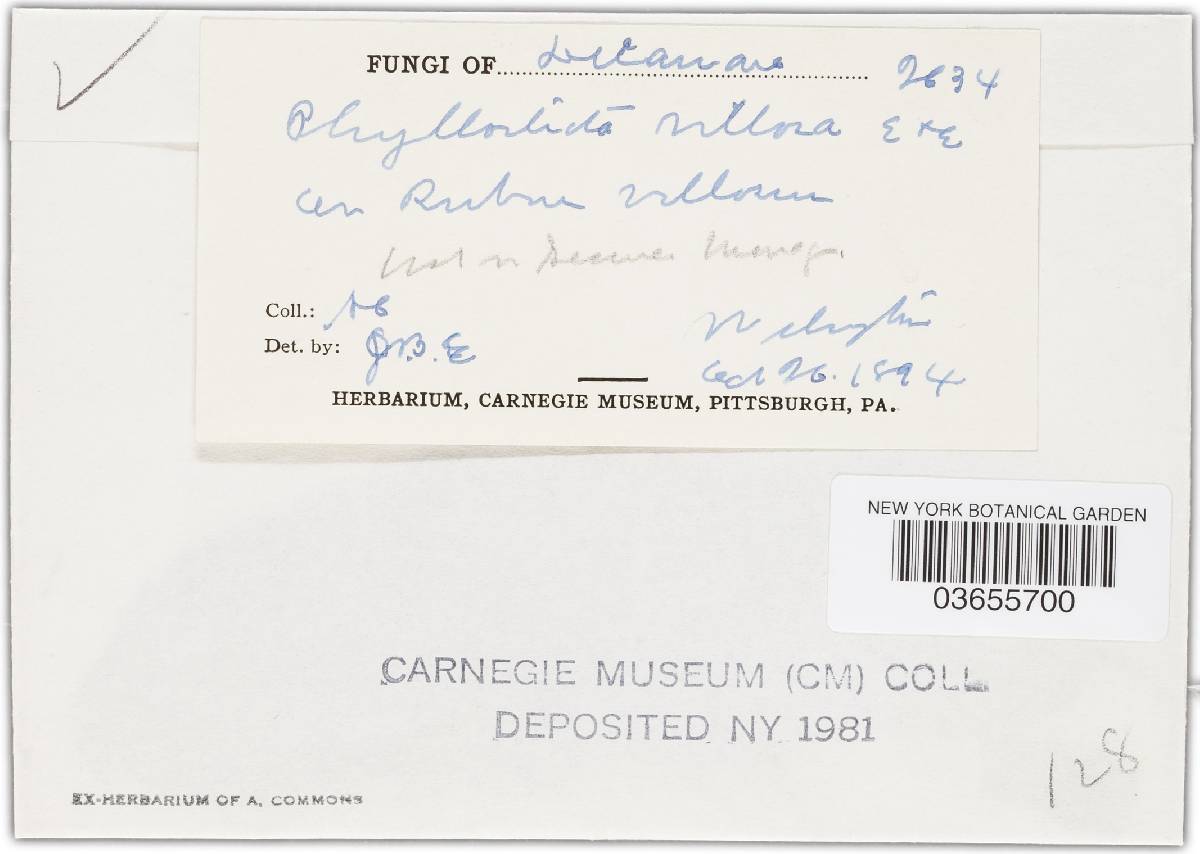 FUNGI OF Delaware 2634
Phyllosticta villosa E & E
on Rubus villosus
not in Seaver Monog.
Coll.: AC
Det. by: J.B.E
Wilmington
Oct 26. 1894
HERBARIUM, CARNEGIE MUSEUM, PITTSBURGH, PA.
NEW YORK BOTANICAL GARDEN
03655700
CARNEGIE MUSEUM (CM) COLL.
DEPOSITED NY 1981
128
EX-HERBARIUM OF A. COMMONS